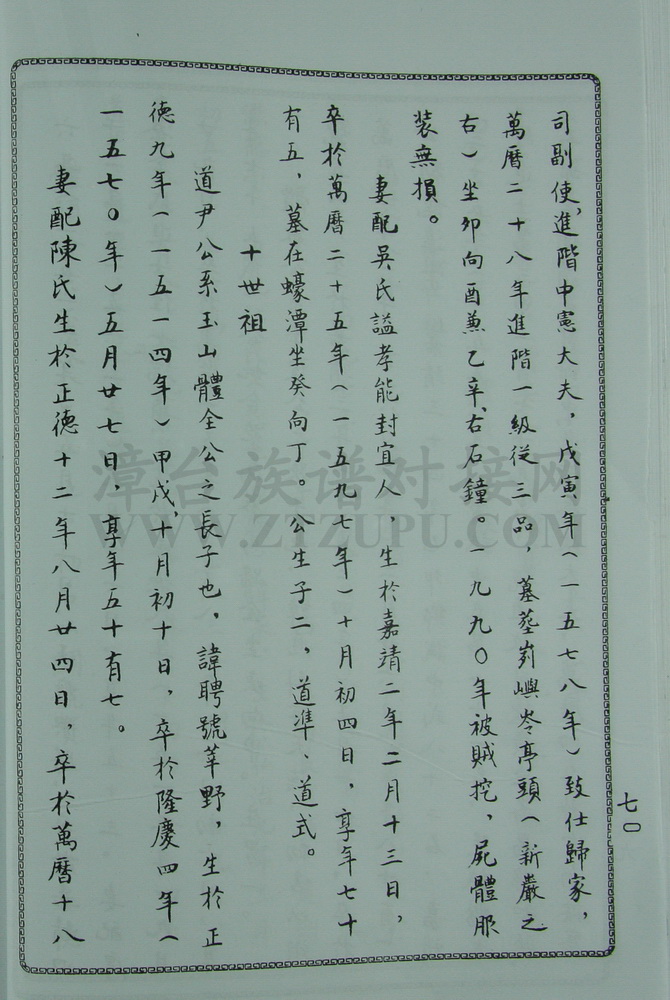 司副使，進階中憲大夫，戊寅年（一五七八年）致仕歸家，
萬曆二十八年進階一級從三品，墓塟峛嶼岺亭頭（新嚴之
右）坐卯向酉兼乙辛、右石鐘。一九九〇年被賊挖，屍體服
装無損。
妻配吳氏謚孝能封宜人，生於嘉靖二年二月十三日，
卒於萬曆二十五年（一五九七年）十月初四日，享年七十
有五，墓在蠔潭坐癸向丁。公生子二，道凖、道式。
十世祖
道尹公系玉山體全公之長子也，諱聘號莘野，生於正
德九年（一五一四年）甲戌，十月初十日，卒於隆慶四年（
一五七〇年）五月廿七日，享年五十有七。
妻配陳氏生於正德十二年八月廿四日，卒於萬曆十八
七〇
漳台族谱对接网
WWW.ZTZUPU.COM